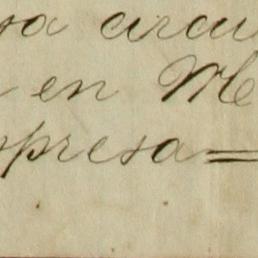 sa circu
en Me
presa=